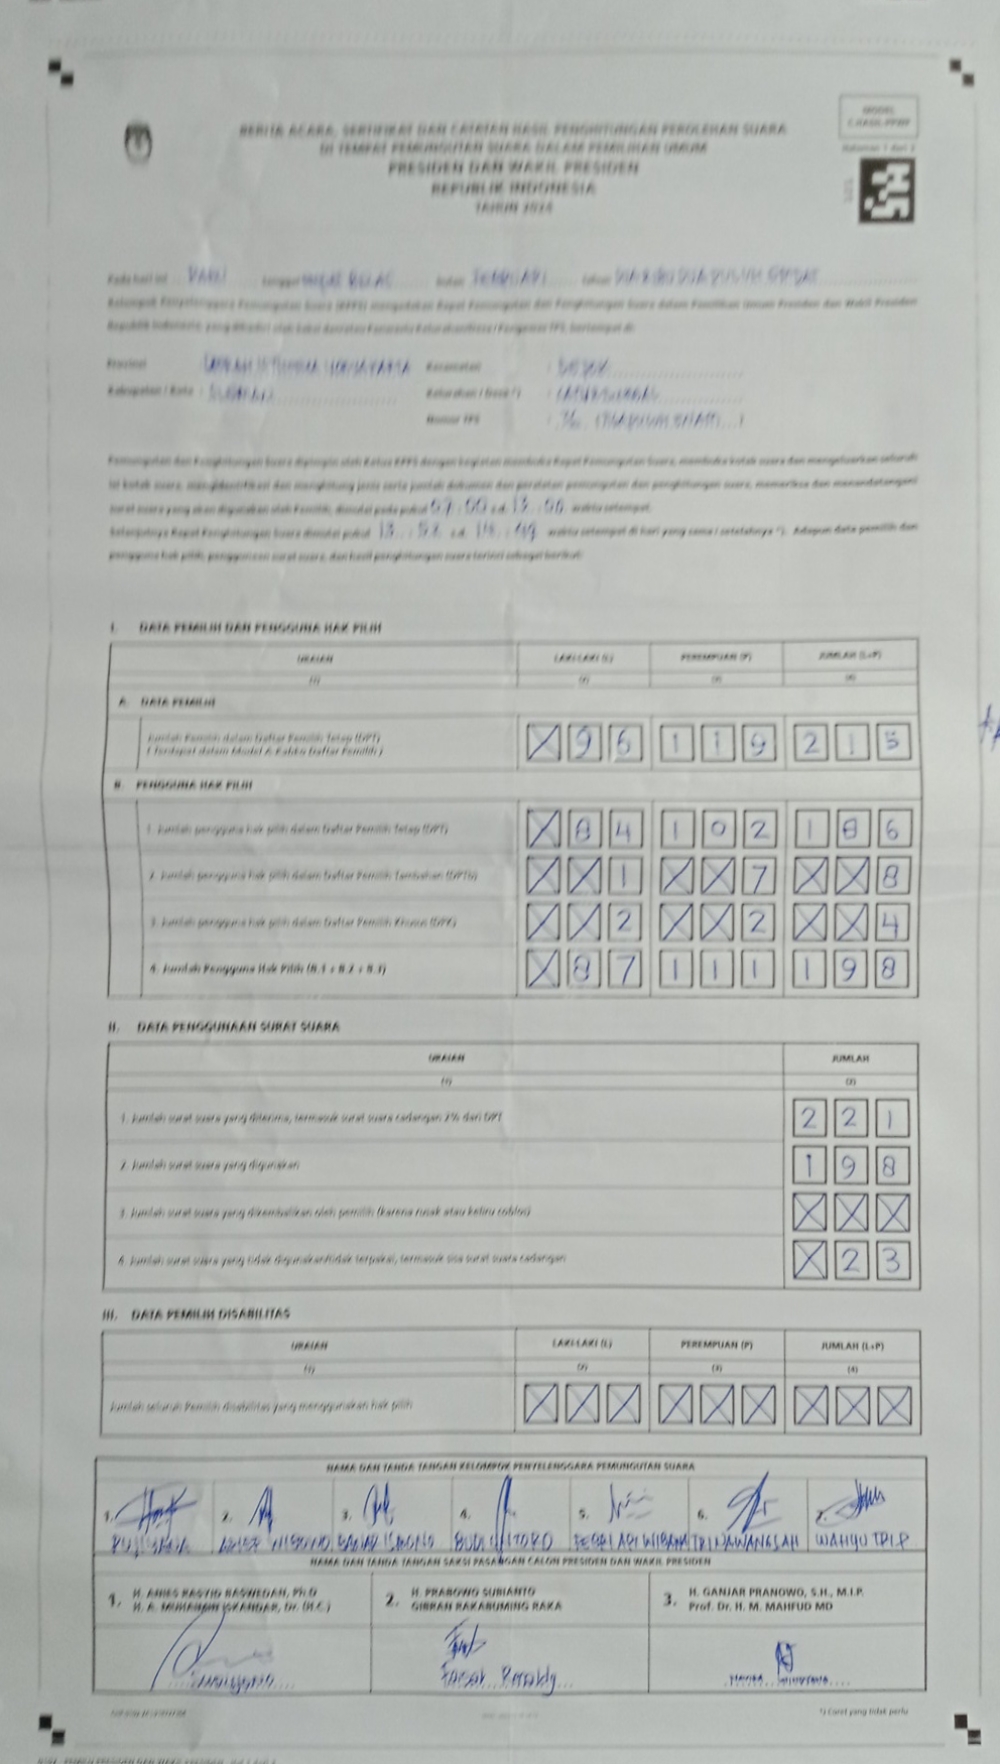 MODEL
C.HASIL-PPWP
BERITA ACARA, SERTIFIKAT DAN CATATAN HASIL PENGHITUNGAN PEROLEHAN SUARA
DI TEMPAT PEMUNGUTAN SUARA DALAM PEMILIHAN UMUM
PRESIDEN DAN WAKIL PRESIDEN
REPUBLIK INDONESIA
TAHUN 2024
Pada hari ini RABU tanggal EMPAT BELAS bulan FEBRUARI tahun DUA RIBU DUA PULUH EMPAT
Kelompok Penyelenggara Pemungutan Suara (KPPS) mengadakan Rapat Pemungutan dan Penghitungan Suara dalam Pemilihan Umum Presiden dan Wakil Presiden
Republik Indonesia, yang dihadiri oleh Saksi
Provinsi DAERAH ISTIMEWA YOGYAKARTA Kecamatan : DEPOK
Kabupaten / Kota : SLEMAN Kelurahan / Desa *) :
Nomor TPS :
Pemungutan dan Penghitungan Suara dipimpin oleh Ketua KPPS dengan kegiatan membuka Rapat Pemungutan Suara, membuka kotak suara dan mengeluarkan seluruh
isi kotak suara, mengidentifikasi dan menghitung jenis serta jumlah dokumen dan peralatan pemungutan dan penghitungan suara, memeriksa dan menandatangani
surat suara yang akan digunakan oleh Pemilih, dimulai pada pukul 07 : 00 s.d. 13 : 00 waktu setempat.
Selanjutnya Rapat Penghitungan Suara dimulai pukul waktu setempat di hari yang sama / setelahnya *). Adapun data pemilih dan
pengguna hak pilih, penggunaan surat suara, dan hasil penghitungan suara terinci sebagai berikut:
I. DATA PEMILIH DAN PENGGUNA HAK PILIH
URAIAN LAKI-LAKI (L) PEREMPUAN (P) JUMLAH (L+P)
(1) (2) (3) (4)
A. DATA PEMILIH
Jumlah Pemilih dalam Daftar Pemilih Tetap (DPT) X 9 6 1 1 9 2 1 5
B. PENGGUNA HAK PILIH
1. Jumlah pengguna hak pilih dalam Daftar Pemilih Tetap (DPT) X 8 4 1 0 2 1 8 6
2. Jumlah pengguna hak pilih dalam Daftar Pemilih Tambahan (DPTb) X X 1 X X 7 X X 8
3. Jumlah pengguna hak pilih dalam Daftar Pemilih Khusus (DPK) X X 2 X X 2 X X 4
4. Jumlah Pengguna Hak Pilih (B.1 + B.2 + B.3) X 8 7 1 1 1 1 9 8
II. DATA PENGGUNAAN SURAT SUARA
URAIAN JUMLAH
(1) (2)
1. Jumlah surat suara yang diterima, termasuk surat suara cadangan 2% dari DPT 2 2 1
2. Jumlah surat suara yang digunakan 1 9 8
3. Jumlah surat suara yang dikembalikan oleh pemilih (karena rusak atau keliru coblos) X X X
4. Jumlah surat suara yang tidak digunakan/tidak terpakai, termasuk sisa surat suara cadangan X 2 3
III. DATA PEMILIH DISABILITAS
URAIAN LAKI-LAKI (L) PEREMPUAN (P) JUMLAH (L+P)
(1) (2) (3) (4)
Jumlah seluruh Pemilih disabilitas yang menggunakan hak pilih X X X X X X X X X
NAMA DAN TANDA TANGAN KELOMPOK PENYELENGGARA PEMUNGUTAN SUARA
1. 2. 3. 4. 5. 6. 7.
WAHYU TRI.P
NAMA DAN TANDA TANGAN SAKSI PASANGAN CALON PRESIDEN DAN WAKIL PRESIDEN
1. H. ANIES RASYID BASWEDAN, Ph.D 2. H. PRABOWO SUBIANTO 3. H. GANJAR PRANOWO, S.H., M.I.P.
H. A. MUHAIMIN ISKANDAR, Dr. (H.C.) GIBRAN RAKABUMING RAKA Prof. Dr. H. M. MAHFUD MD
*) Coret yang tidak perlu